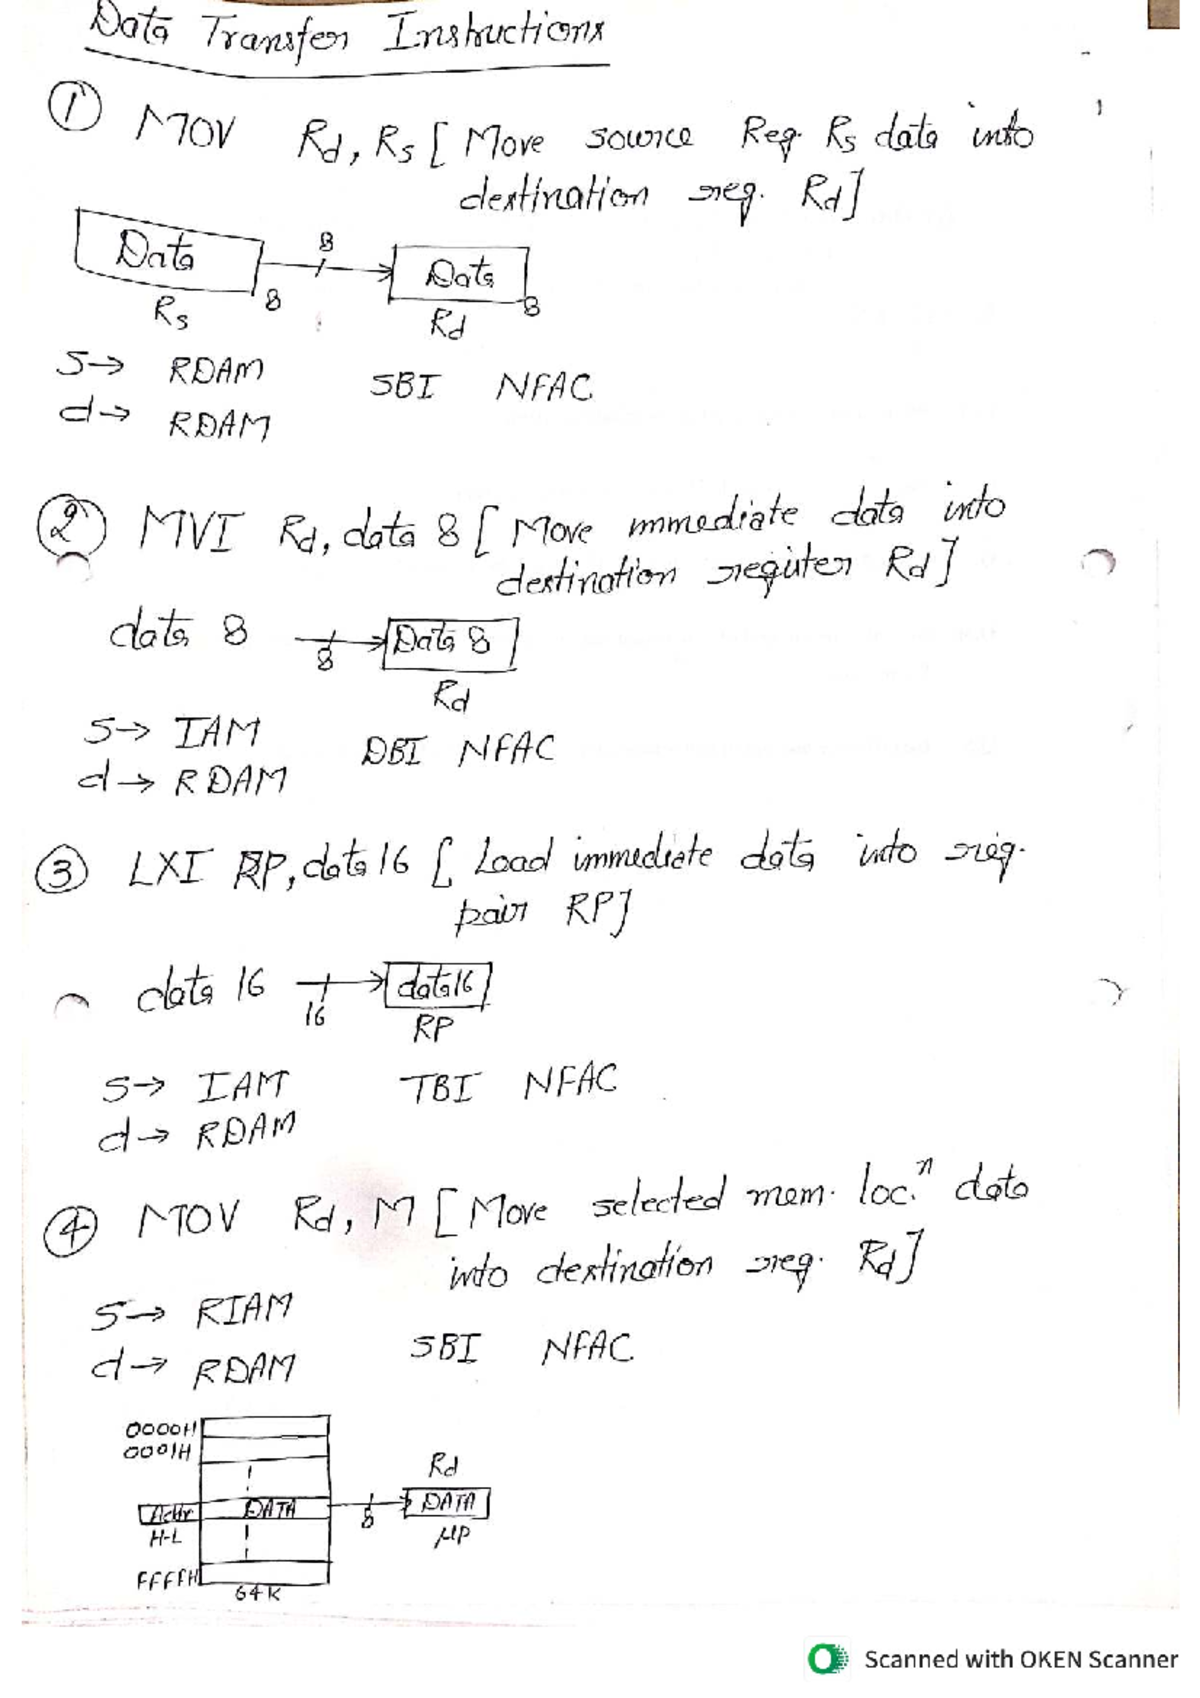 Data Transfer Instructions
① MOV Rd, Rs [ Move source Reg. Rs data into
destination reg. Rd]
Data 8 Data
Rs 8 Rd 8
S→ RDAM SBI NFAC
d→ RDAM
② MVI Rd, data 8 [ Move immediate data into
destination register Rd]
data 8 8 Data 8
Rd
S→ IAM DBI NFAC
d→ RDAM
③ LXI RP, data 16 [ Load immediate data into reg.
pair RP]
data 16 16 data16
RP
S→ IAM TBI NFAC
d→ RDAM
④ MOV Rd, M [ Move selected mem. loc.ⁿ data
into destination reg. Rd]
S→ RIAM SBI NFAC
d→ RDAM
0000H
0001H
Rd
Addr DATA 8 DATA
H-L μP
FFFFH
64K
Scanned with OKEN Scanner